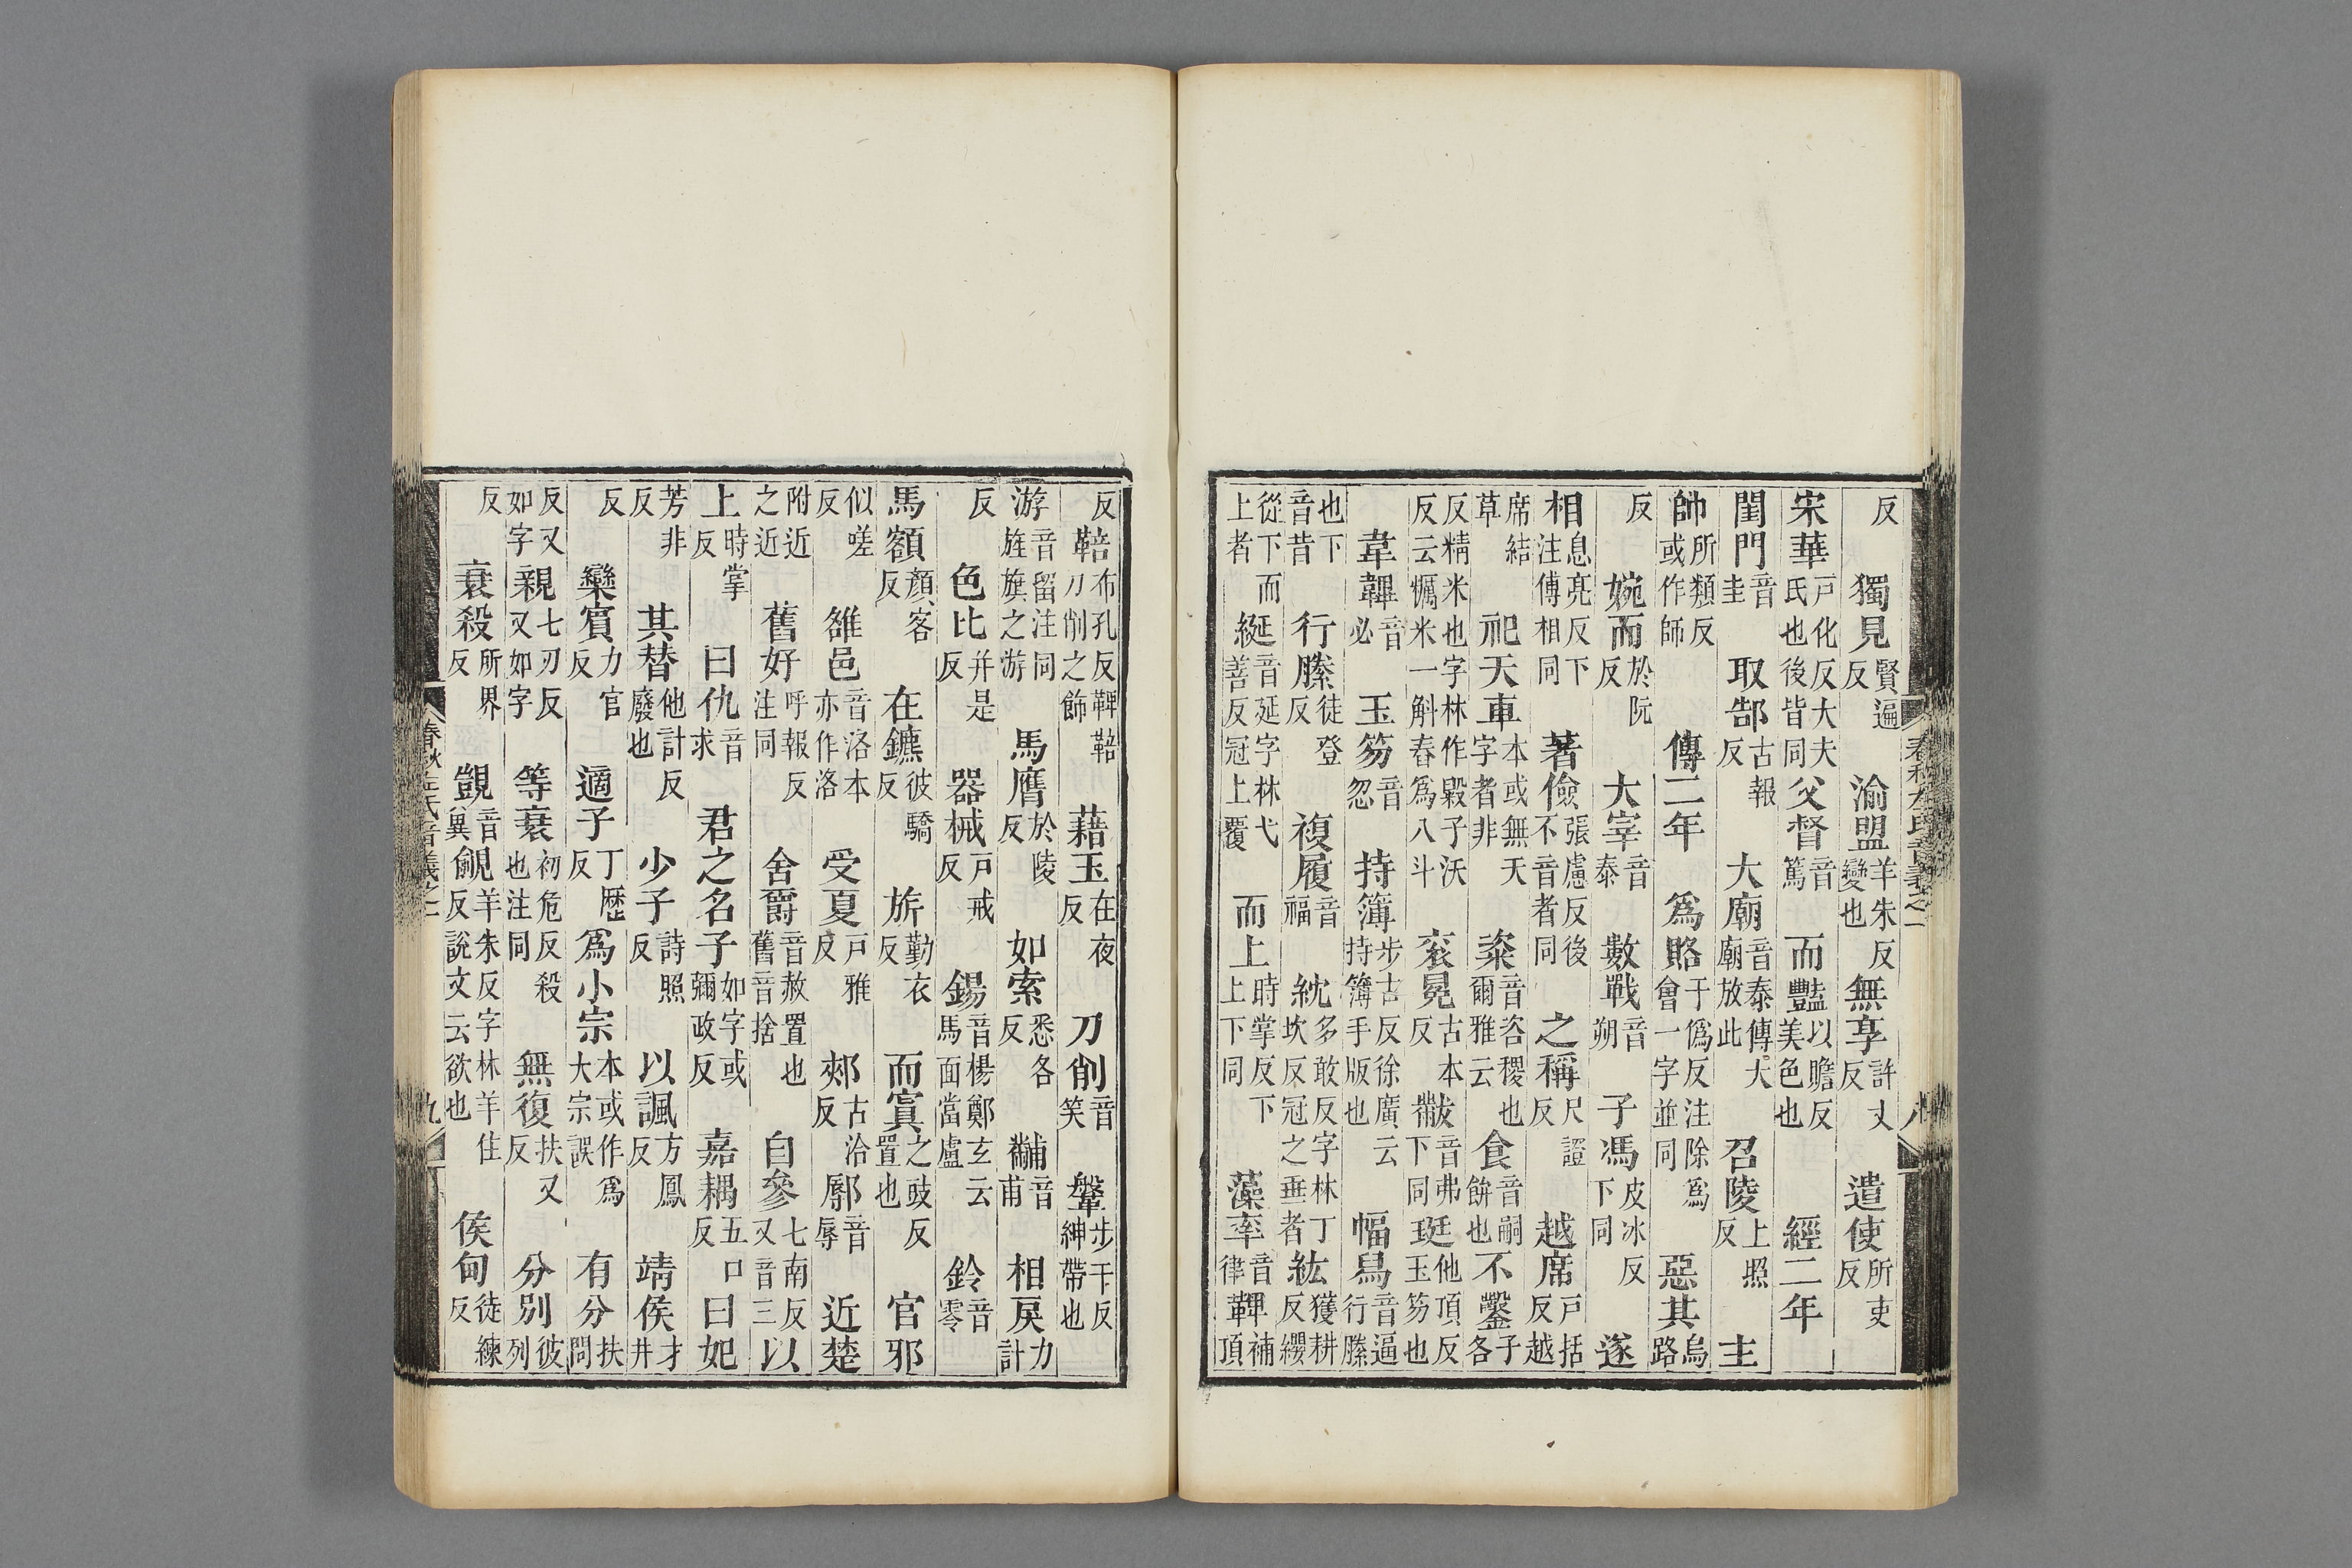 反獨見賢遍反渝盟羊朱反變也無享許丈反遣使所吏反
宋華戶化反大夫氏也後皆同父督音篤而豔以贍反美色也經二年
閨門音圭取郜古報反大廟音泰傳大廟放此召陵上照反主
帥所類反或作師傳二年為賂于偽反注除為會一字並同惡其烏路
反婉而於阮反大宰音泰數戰音朔子馮皮冰反下同遂
相息亮反下注傳相同著儉張慮反後不音者同之稱尺證反越席戶括反越
席結草祀天車本或無天字者非粢音咨稷也爾雅云食音嗣餅也不鑿子各
反精米也字林作毇子沃反云糲米一斛舂為八斗袞冕古本反黻音弗下同珽他頂反玉笏也
韋韠音必玉笏音忽持簿步古反徐廣云持簿手版也幅舄音逼行縢
也下音昔行縢徒登反複履音福紞多敢反字林丁坎反冠之垂者紘獲耕反纓
從下而上者綖音延字林弋善反冠上覆而上時掌反下上下同藻率音律鞞補頂
春秋左氏音義之一 八
反鞛布孔反鞞鞛刀削之飾藉玉在夜反刀削音笑鞶步干反紳帶也
游音留注同旌旗之游馬膺於陵反如索悉各反黼音甫相戾力計
反色比并是反器械戶戒反鍚音楊鄭玄云馬面當盧鈴音零
馬額顏客反在鑣彼驕反旂勤衣反而寘之豉反置也官邪
似嗟反雒邑音洛本亦作洛受夏戶雅反郟古洽反鄏音辱近楚
附近之近舊好呼報反注同舍爵音赦置也舊音捨自參七南反又音三以
上時掌反曰仇音求君之名子如字或彌政反嘉耦五口反曰妃
芳非反其替他計反廢也少子詩照反以諷方鳳反靖侯才井
反欒賓力官反適子丁歷反為小宗本或作為大宗誤有分扶問
反又如字親七刃反又如字等衰初危反殺也注同無復扶又反分別彼列
反衰殺所界反覬音冀覦羊朱反字林羊住反說文云欲也侯甸徒練反
春秋左氏音義之一 九